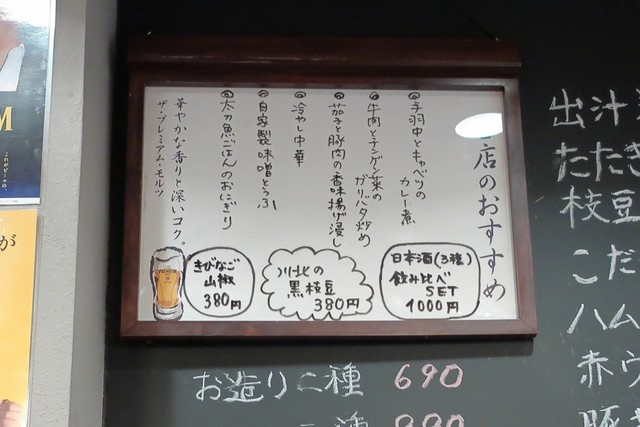 店のおすすめ
手羽中とキャベツの
カレー煮
牛肉とチンゲン菜の
ガリバタ炒め
茄子と豚肉の香味揚げ浸し
冷やし中華
自家製味噌とうふ
太刀魚ごはんのおにぎり
華やかな香りと深いコク。
ザ・プレミアム・モルツ
日本酒(3種)
飲み比べ
SET
1000円
川北の
黒枝豆
380円
きびなご
山椒
380円
お造り二種 690
出汁
たたき
枝豆
こだ
ハム
赤ウ
豚
M
これがビールの、
が